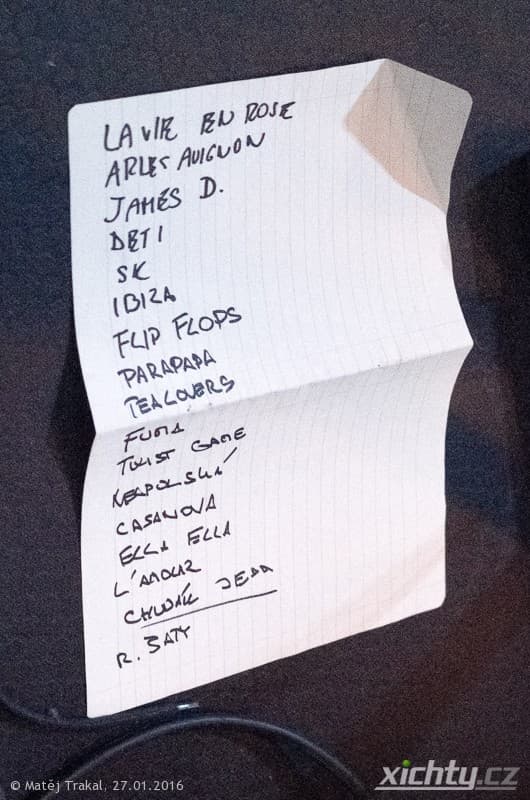 LA VIE EN ROSE
ARLES AVIGNON
JAMES D.
DĚTI
SK
IBIZA
FLIP FLOPS
PARAPAPA
TEALOVERS
TWIST GAME
NEAPOLSKÁ
CASANOVA
ELLA ELLA
L'AMOUR
CHUDÁK JEDA
R. BATY
© Matěj Trakal, 27.01.2016
xichty.cz